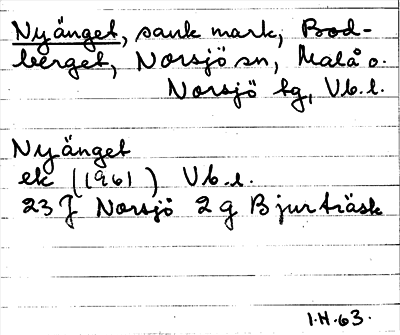 Nyänget, sank mark, Bod-
berget, Norsjö sn, Malå o.
Norsjö tg, Vb.l.
Nyänget
ek (1961) Vb.l.
23 J Norsjö 2 g Bjurträsk
I.H.63.